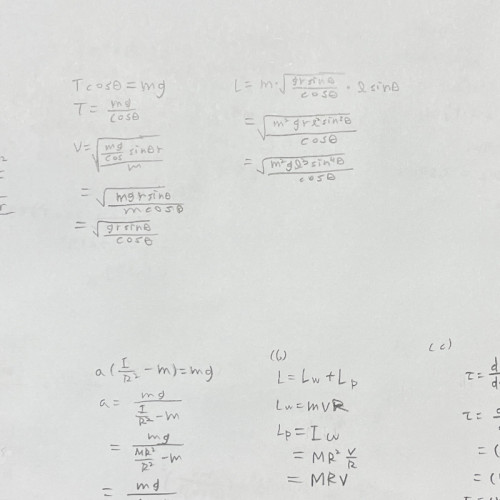 T cosθ = mg
T = mg/cosθ
V = √((mg/cos sinθ r)/m)
= √(mgr sinθ/m cosθ)
= √(gr sinθ/cosθ)
L = m·√(gr sinθ/cosθ) · l sinθ
= √(m² gr l² sin³θ/cosθ)
= √(m² g l³ sin⁴θ/cosθ)
a(I/R² - m) = mg
a = mg/(I/R² - m)
= mg/(MR²/R² - m)
= mg
(b)
L = Lw + Lp
Lw = mVR
Lp = Iω
= MR² V/R
= MRV
(c)
τ = d
τ =
= (